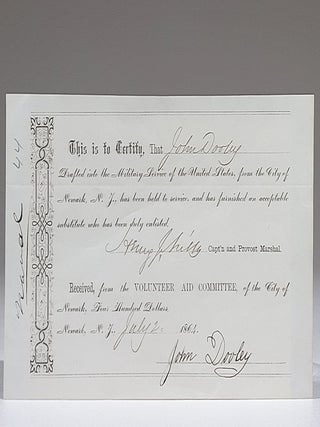 This is to Certify, That John Dooley
Drafted into the Military Service of the United States, from the City of
Newark, N. J., has been held to service, and has furnished an acceptable
substitute who has been duly enlisted.
Henry J. Mills Capt'n and Provost Marshal.
Received, from the VOLUNTEER AID COMMITTEE, of the City of
Newark, Four Hundred Dollars.
Newark, N. J., July 2. 1864.
John Dooley
44